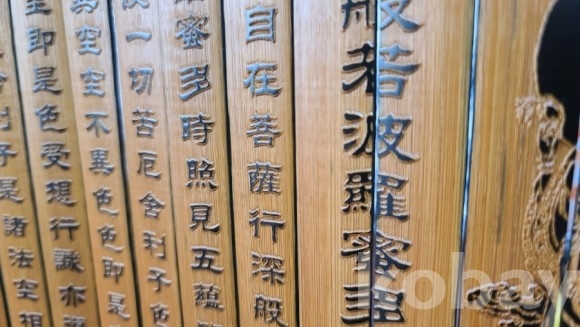 般若波羅蜜
自在菩薩行深般
蜜多時照見五蘊
一切苦厄舍利子色
異空空不異色色即是
空即是色受想行識亦復
舍利子是諸法空相
kobay